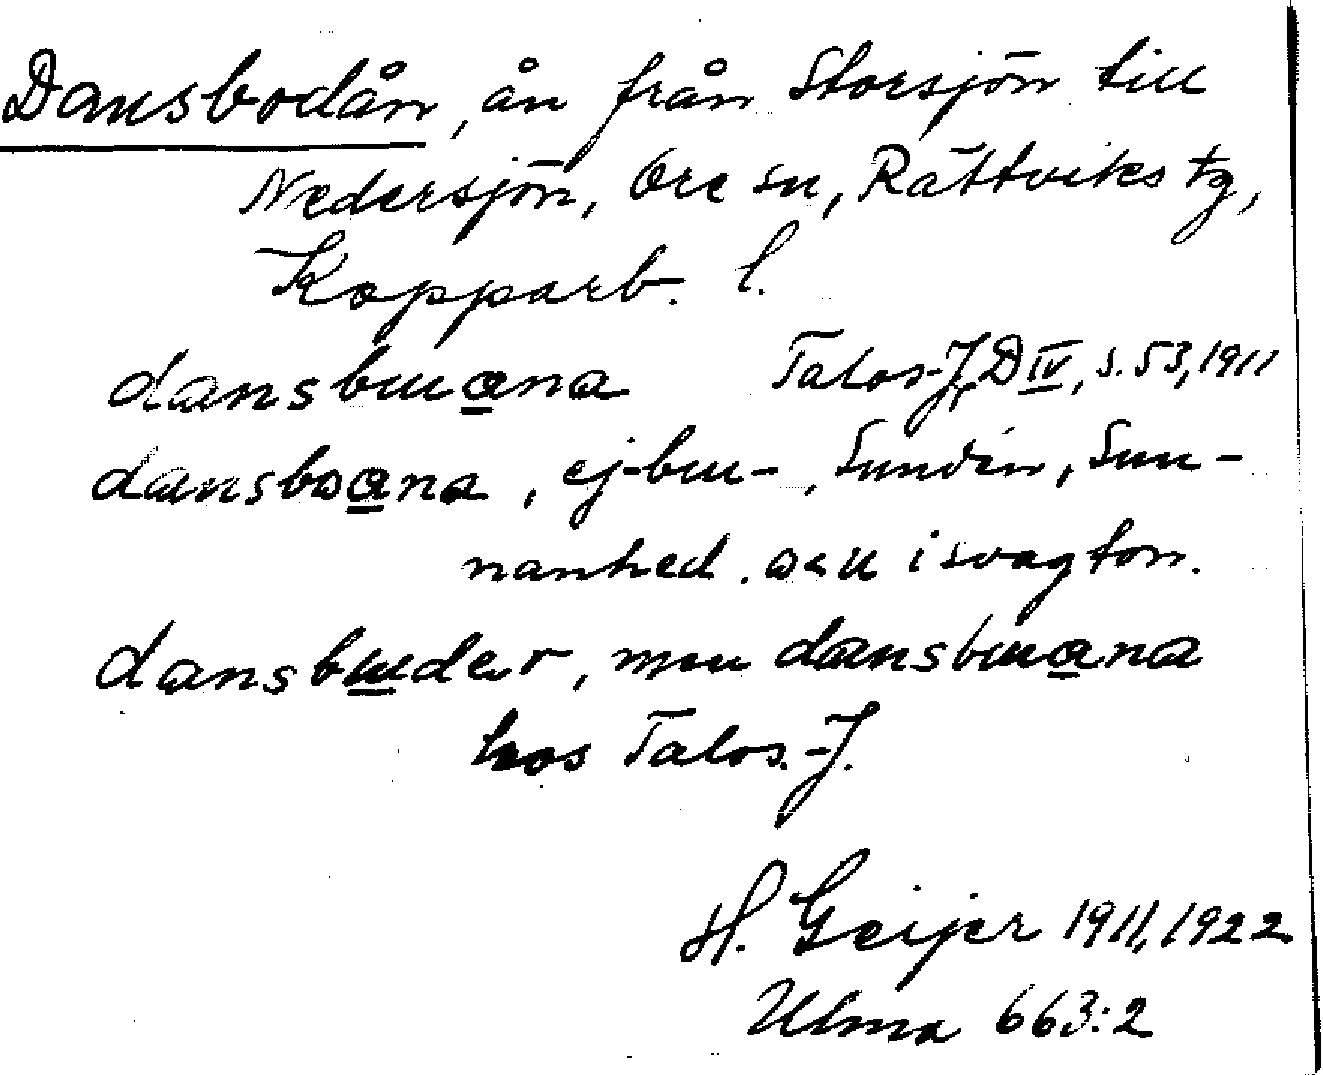 Dansbodån, ån från Storsjön till
Nedersjön, Ore sn, Rättviks tg,
Kopparb. l.
dansbɯana Talos-J, D IV, s. 53, 1911
dansboana, ej -bɯ-, Sundin, Sun-
nanhed. i svag ton.
dansbɯder, men dansbɯana
hos Talos.-J.
H. Geijer 1911, 1922
Ulma 663:2